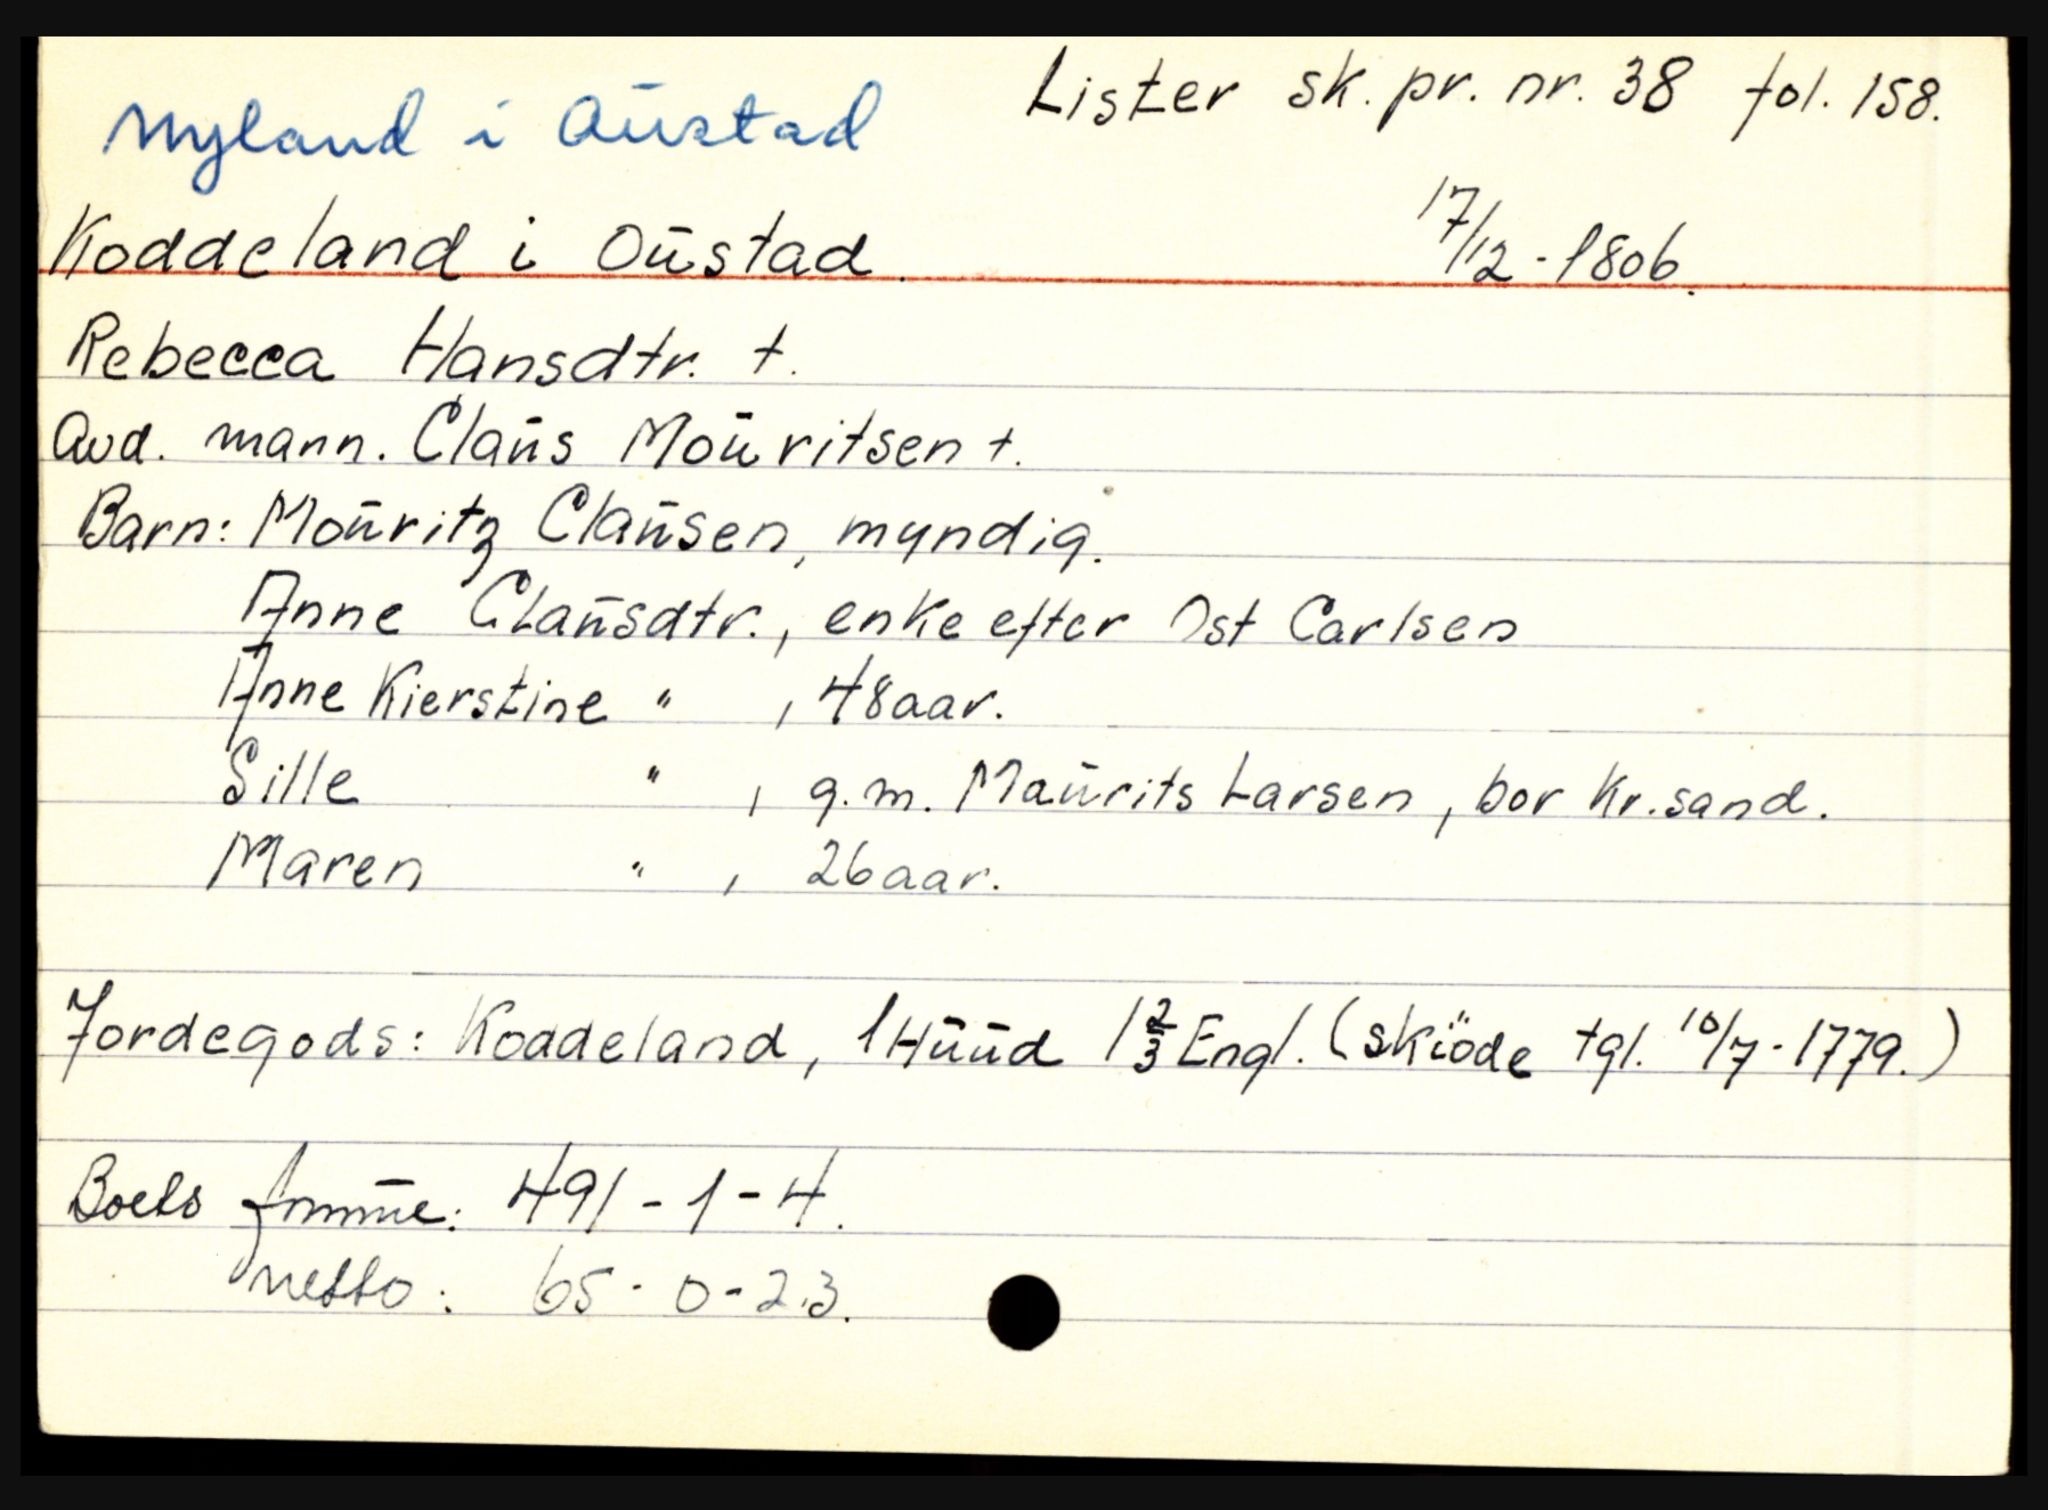 Lister sk. pr. nr. 38 fol. 158.
Nyland i Austad
Koddeland i Oustad. 17/12-1806.
Rebecca Hansdtr. †.
Avd. mann. Claus Mouritsen †.
Barn: Mouritz Clausen, myndig.
Anne Clausdtr., enke efter Ost Carlsen
Anne Kierstine " , 48 aar.
Sille " , g.m. Maurits Larsen, bor Kr.sand.
Maren " , 26 aar.
Jordegods: Koddeland, 1 Huud 1 2/3 Engl. (skiöde tgl. 10/7-1779.)
Boets summe: 491-1-4.
netto: 65-0-23.